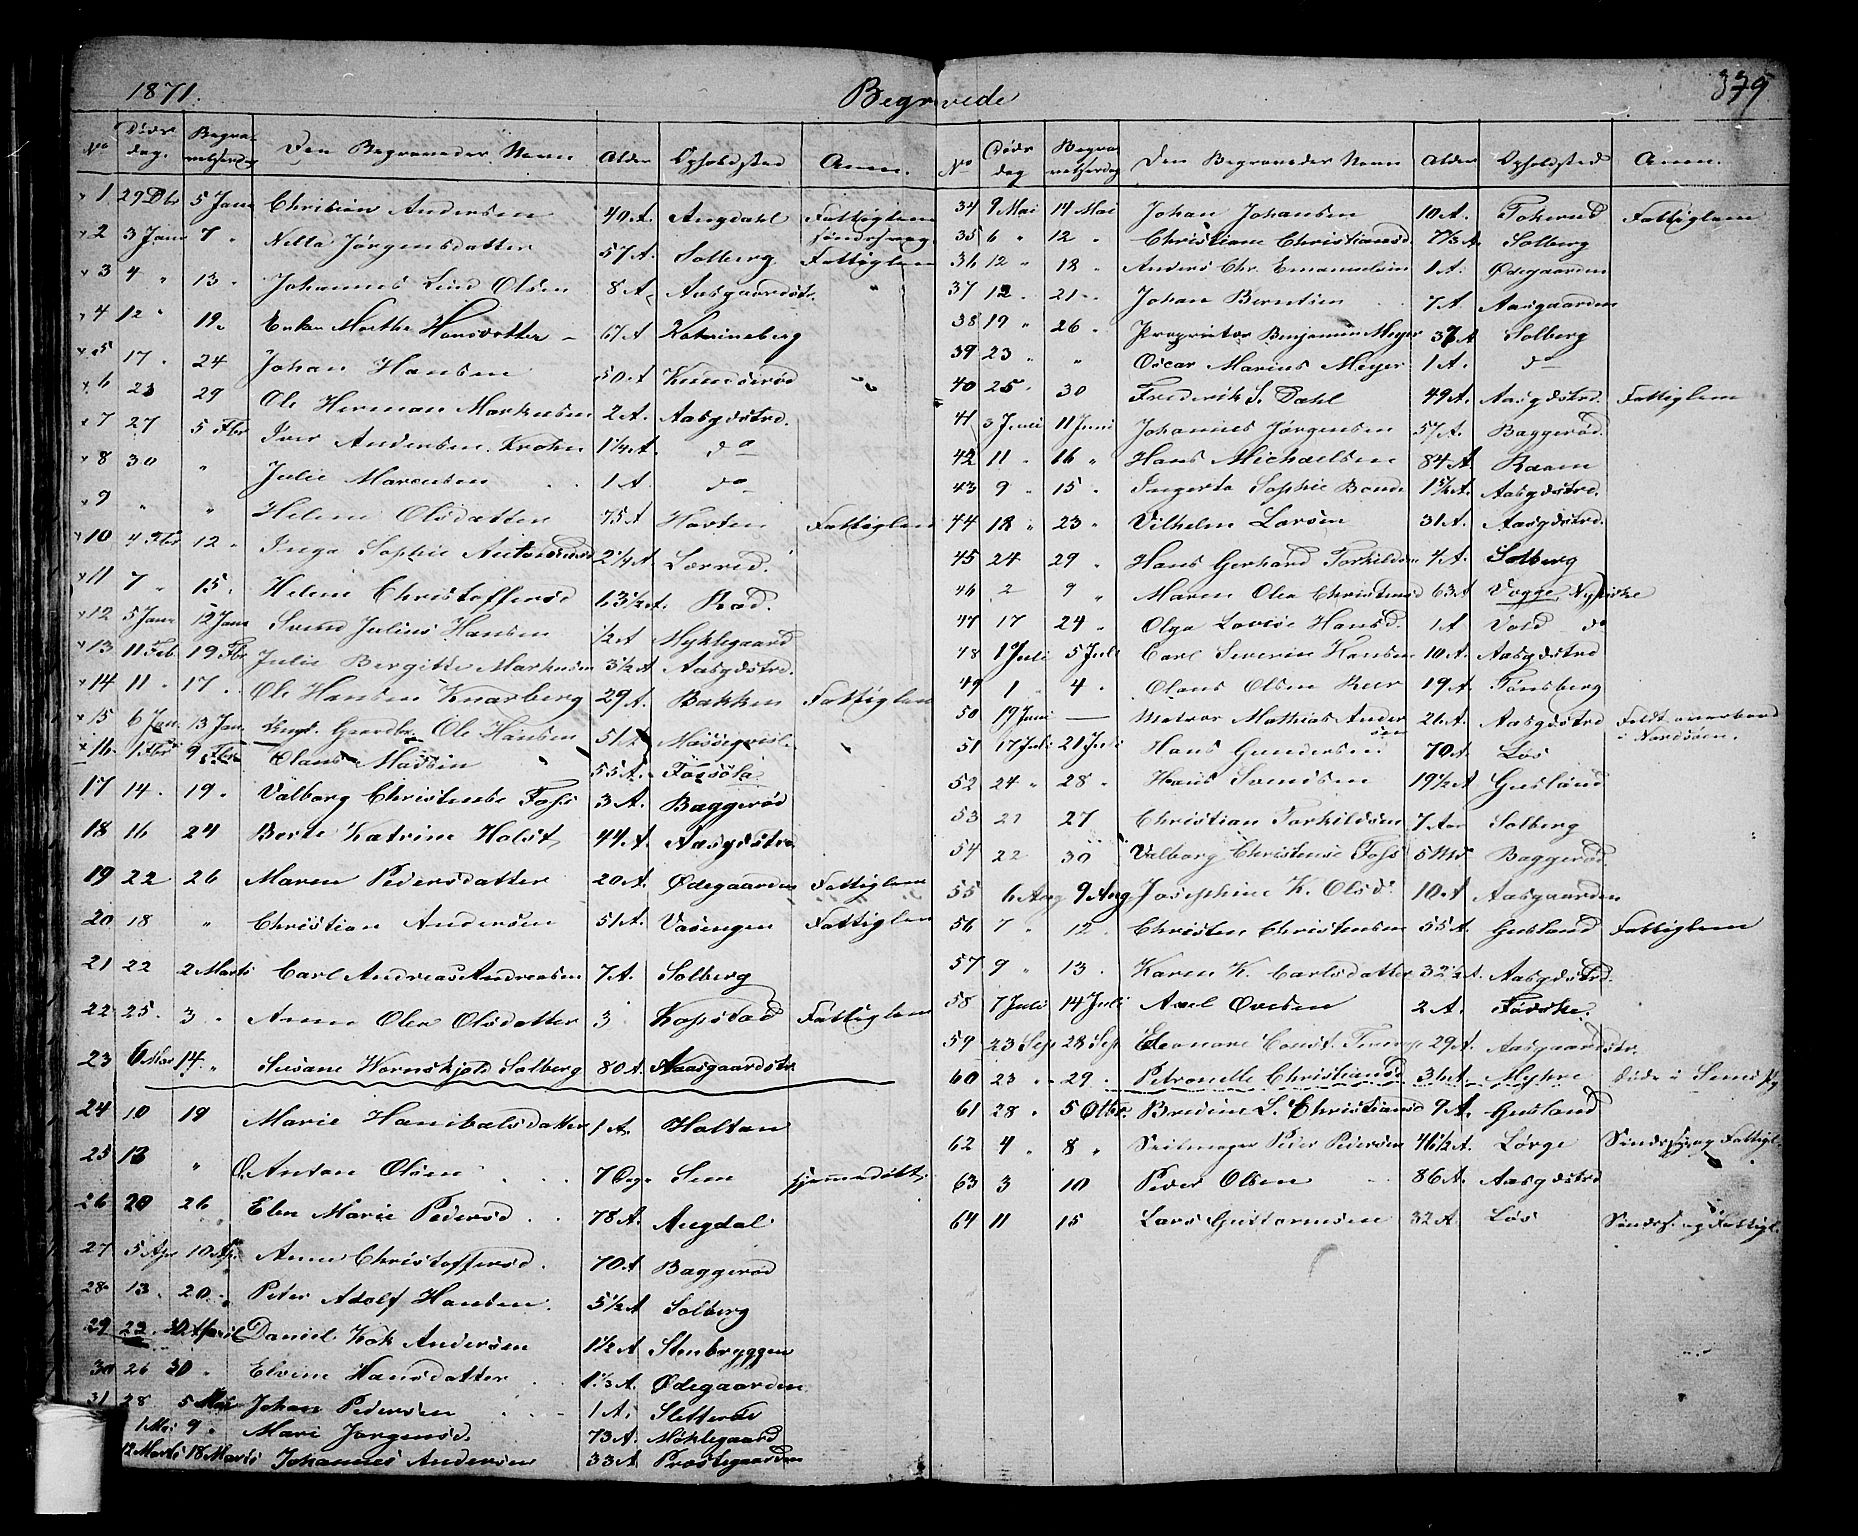 1871.
Begravede
379
No Døds dag. Begravelsesdag Den Begravedes Navn Alder Opholdssted Anm.
1 29 Dbr 5 Janr Christian Andersen 40 A. Augdahl Fattiglem
2 3 Janr 7 " Nella Jørgensdatter 57 A. Solberg Fattiglem
3 4 " 13 " Johannes Lund Olsen 8 A. Aasgaardstr. "
4 12 " 19 " Enken Marthe Hansdatter 67 A Kathrineberg
5 17 " 24 Johan Hansen 50 A "
6 23 29 Ole Herman Markusen 2 A. Aasgdstrd.
7 27 5 Fbr Iver Andersen Krohn 1 1/4 A. do
8 30 " Julie Marcusen 1 A. do
9 " " Helene Olsdatter 75 A Horten Fattiglem
10 4 Fbr 12 " Inga Sophie Antonsdd 2 1/4 A.
11 7 " 15. Helene Christoffersd 63 1/2 A. Rød.
12 5 Janr 12 Janr Svend Julius Hansen 1/2 A Myklegaard
13 11 Feb. 19 Fbr Julie Bergitte Markusen 3 1/2 A. Aasgdstrd.
14 11 " 17 " Ole Hansen Knarberg 29 A. Bakken Fattiglem
15 6 Jan. 13 Jan Gaardbr. Ole Hansen 51 A "
16 1 Fbr 9 Fbr Olaus Madsen 55 A.
17 14 " 19 " Valborg Christense Foss 3 A. Baggerød
18 16 24 Berte Katrine Holst 44 A. Aasgdstrd.
19 22 26 Maren Pedersdatter 20 A. Ødegaarden Fattiglem
20 18 " Christian Andersen 51 A. Vasengen Fattiglem
21 22 2 Marts Carl Andreas Andreasen 7 A. Solberg
22 25. 3 " Anne Olea Olsdatter 3 Kopstad Fattiglem
23 6 Mar 14 " Susane Wornskjold Solberg 80 A. Aasgaardstr.
24 10 19 Marie Hanibalsdatter 1 A. Holtan
25 13 " Anton Olsen 7 Dge Sem hjemmedøbt
26 20 26 Elen Marie Pedersd. 78 A. Augdal
27 5 Apr 10 Ap. Anne Christoffersd. 70 A Baggerød
28 13 " 20 " Peter Adolf Hansen. 5 1/2 A Solberg
29 23 " 30 April Daniel Kok Andersen 1 1/2 A Stenbryggen
30 26 30 " Elvine Hansdatter 1 1/3 A. Ødegaarden
31 28 5 Mai Johan Pedersen 1 A. Sletterød
1 Mai 9 " Mari Jørgensd. 73 A. Møklegaard
12 Marts 18 Marts Johannes Andersen 33 A Præstegaarden
No Døds dag Begravelsesdag Den Begravedes Navn Alder Opholdssted Anm.
34 9 Mai 14 Mai Johan Johansen 10 A. Fattiglem
35 6 " 12 " Christiane Christiansd. 7 1/3 A. Solberg
36 12 " 18 " Anders Chr. Emanuelsen 1 A. Ødegaarden
37 12 " 21 " Johan Berntsen 7 A Aasgaarden
38 19 " 26 " Proprietær Benjamin Meyer 37 A Solberg
39 23 " " Oscar Marius Meyer 1 A. do
40 25 " 30 Frederik S. Dahl 49 A. Aasgdstrd. Fattiglem
41 3 Juni 11 Juni Johannes Jørgensen 57 A. Baggerød.
42 11 " 16 " Hans Michaelsen 84 A. Raam
43 9 " 15 " Ingerta Sophie 1 1/2 A. Aasgdstrd.
44 18 " 23 " Vilhelm Larsen 31 A. Aasgdstrd.
45 24 29 " Hans Gerhard Torkildsen 4 A. Solberg
46 2 9 " Maren Olea Christensd 63 A Vogge, Nykirke
47 17 24 " Olga Lovise Hansd. 1 A Vold do
48 1 Juli 5 Juli Carl Severin Hansen 10 A. Aasgdstrd
49 1 " 4 " Olaus Olsen 19 A. Tønsberg
50 19 Juni — Matros Mathias Andersen 26 A. Aasgdstrd Faldt overbord i Nordsøen.
51 17 Juli 21 Juli Hans Gundersen 70 A. Løs
52 24 " 28 " Hans Svendsen 19 1/2 A. Gusland
53 21 27 Christian Torkildsen 7 Aar Solberg
54 22 30 Valborg Christense Foss 5 Md Baggerød
55 6 Aug 9 Aug Josephine K. Olsd. 10 A. Aasgaarden
56 7 " 12 " Christen Christensen 55 A. Gusland Fattiglem
57 9 " 13 " Karen K. Carlsdatter 32 1/2 A. Aasgdstrd.
58 7 Juli 14 Juli Axel Ovesen 2 A.
59 23 Sep 28 Sept Eleonore Const. 29 A. Aasgaardstr.
60 23 " 29 " Petronelle Christiansd 36 A. Myhre Døde i
61 28 " 5 Otbr. Bredine L. Christiansd 9 A. Gusland
62 4 " 8 " Seilmager Peder Pedersen 46 1/2 A. Lørge Sindssyg og Fattigl.
63 3 10 Peder Olsen 86 A. Aasgdstrd
64 11 15 Lars Guttormsen 32 A. Løs Sindss. og Fattigl.